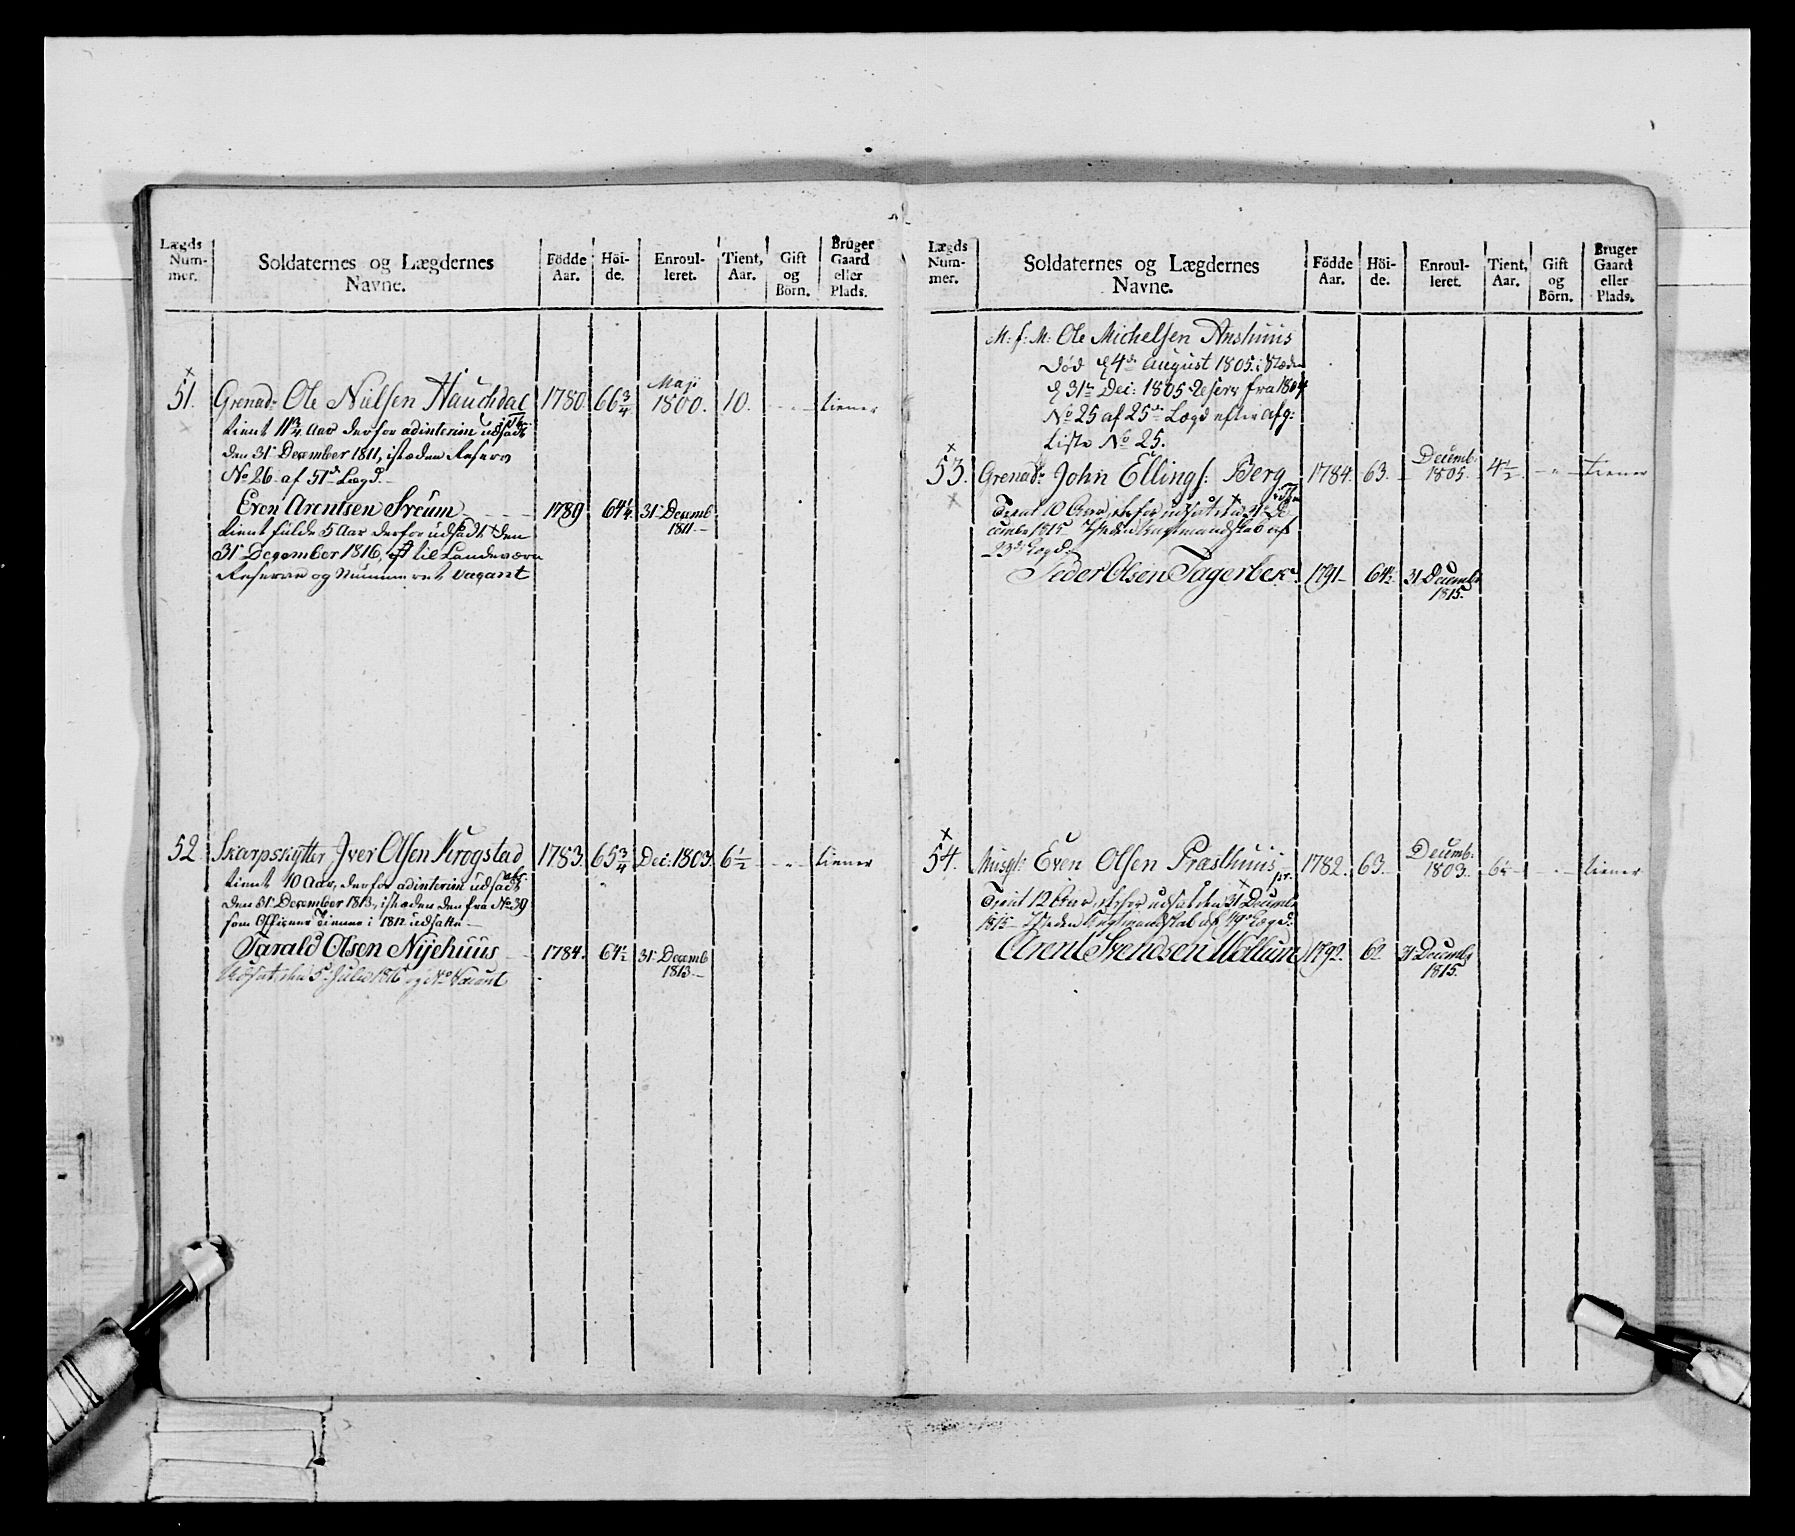 Lægds Num- mer.
Soldaternes og Lægdernes Navne.
Födde Aar.
Höi- de.
Enroul- leret.
Tient, Aar.
Gift og Börn.
Bruger Gaard eller Plads.
51. Grenad: Ole Nielsen Hauchdal 1780. 66 3/4 Maji 1800. 10. - " - tiener
tient 11 3/4 Aar derfor adinterim udsadt
den 31 December 1811, isteden Reserv
No 26 af 51de Lægd.
Even Arentsen Sveum 1789 64 1/4 31 Decemb 1811
tient fulde 5 Aar derfor udsadt den
31 December 1816, til Landeværn
Reserven og Nummeret Vacant
52 Skarpskytter Iver Olsen Krogstad 1783. 65 3/4 Dec: 1803. 6 1/2 - " - tiener
tient 10 Aar, derfor adinterim udsadt
den 31 December 1813, isteden den fra No 39
som Officeer Tienner i 1812 udsatte
Tarald Olsen Nijehuus 1784. 64 1/2 31 Decemb 1813
Udsat den 5 Julii 1816 og No Vacant
Lægds Num- mer.
Soldaternes og Lægdernes Navne.
Födde Aar.
Höi- de.
Enroul- leret.
Tient, Aar.
Gift og Börn.
Bruger Gaard eller Plads.
M: f: M: Ole Michelsen Aashuus
död d 4de August 1805. i Stæden
d 31te Dec: 1805 Reserv fra 1804
No 25 af 25de Lægd efter Afg:
Liste No 25.
53. Grenad: John Ellings: Berg 1784. 63. Decemb. 1805. 4 1/2 - " - tiener
Tient 10 Aar, derfor udsat den 31 De-
cember 1815 Isteden Knytmandskab af
23de Lægd:
Peder Olsen Fagerbek 1791 64 1/2 31 Decembr 1815.
54. Musqt: Even Olsen Præsthuus 1782. 63. Decemb. 1803. 6 1/2 - " - tiener
Tient 12 Aar, derfor udsat den 31 Decembr
1815 Isteden Knytmandskab af 19de Lægd:
Arent Svendsen Wollum 1792. 62 31 Decembr 1815.